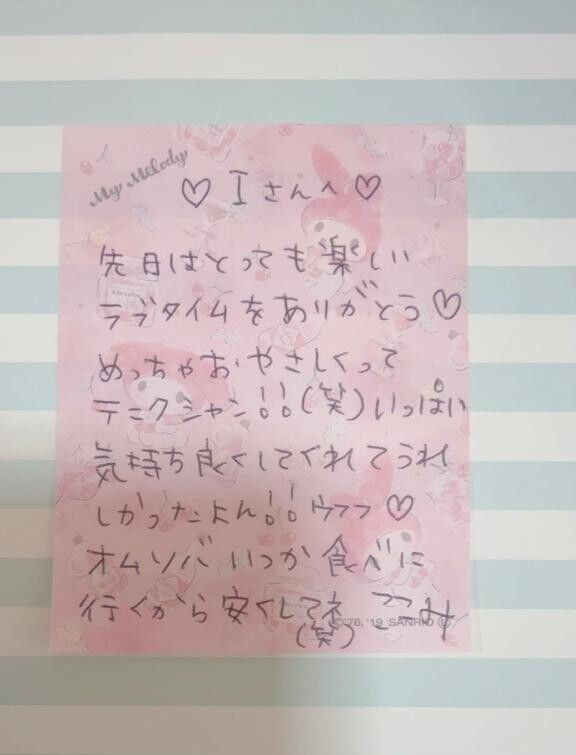 My Melody
♡ Iさんへ ♡
先日はとっても楽しい
ラブタイムをありがとう♡
めっちゃおやさしくって
テニクシャン!!(笑)いっぱい
気持ち良くしてくれてうれ
しかったよん!!ウフフ♡
オムソバいつか食べに
行くから安くしてネ ここみ
(笑)
©'76, '19 SANRIO